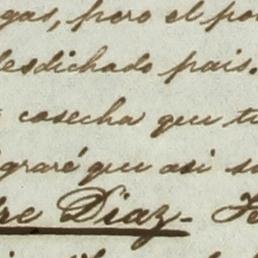 gas, pero el po
desdichado pais.
cosecha que tu
graré que asi s
re Diaz-